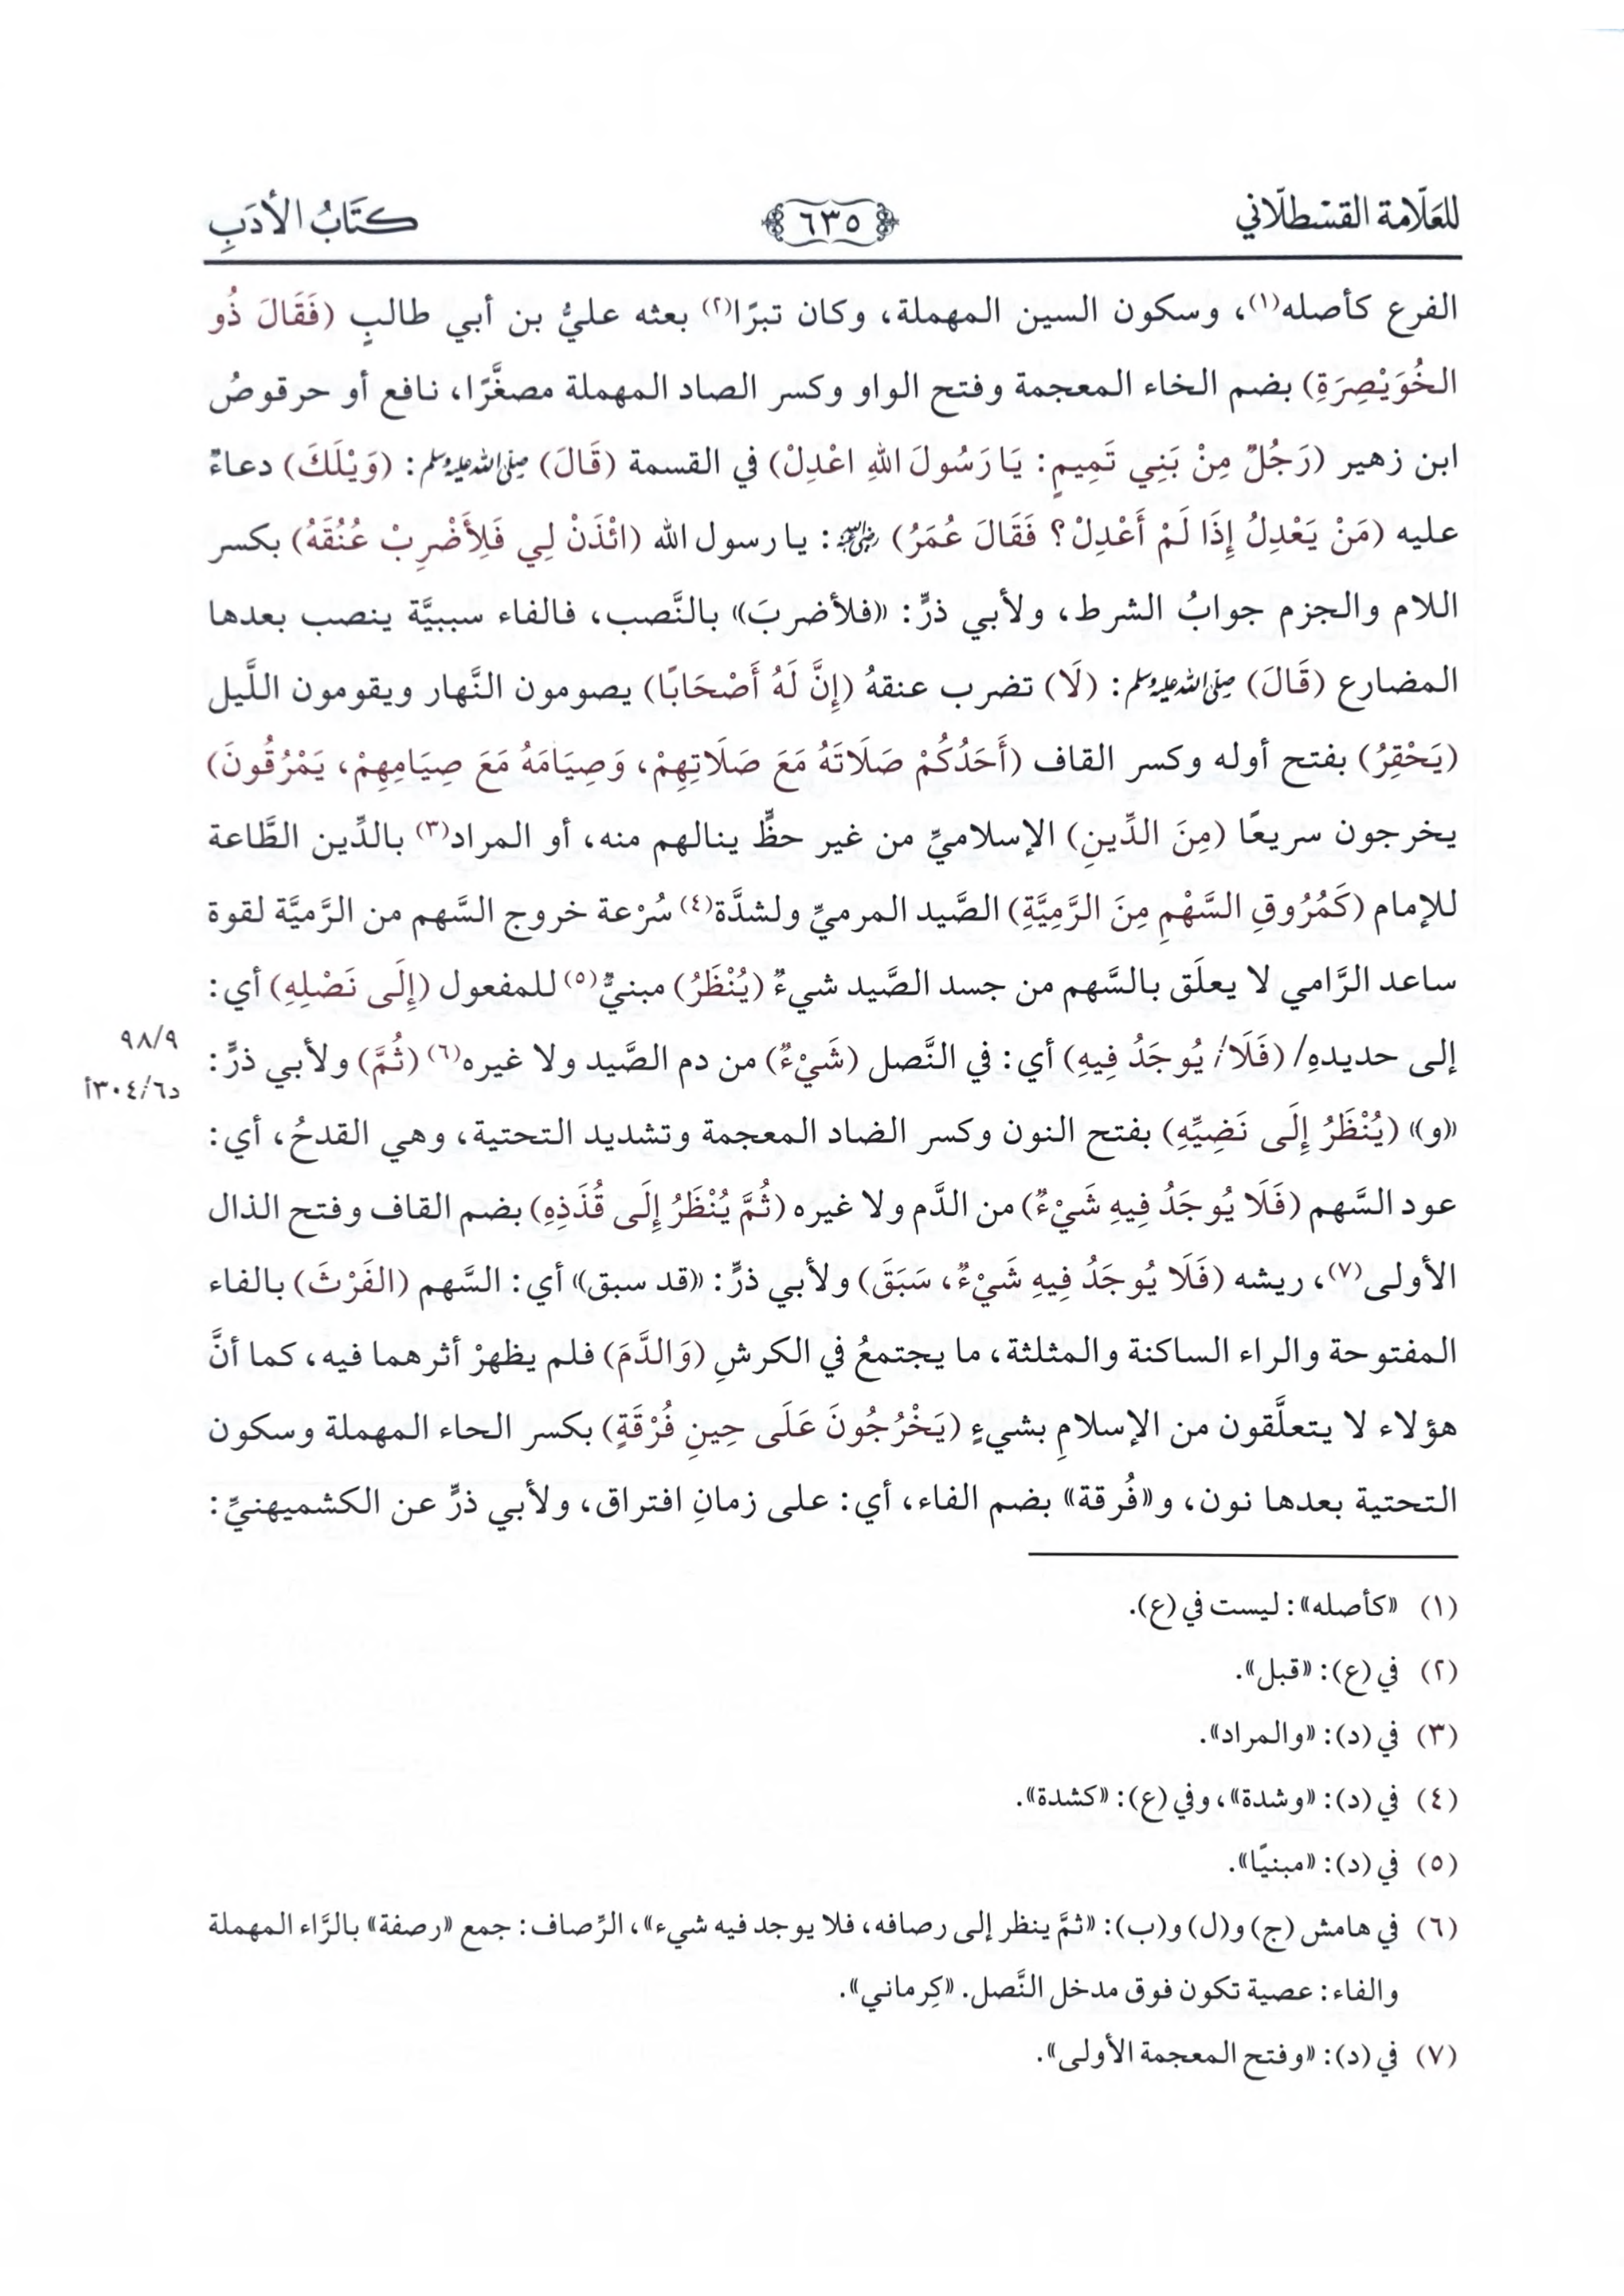 للعَلّامة القسْطلّاني ٦٣٥ كتَابُ الأدَبِ
الفرع كأصله(١)، وسكون السين المهملة، وكان تبرًا(٢) بعثه عليُّ بن أبي طالبٍ (فَقَالَ ذُو
الخُوَيْصِرَةِ) بضم الخاء المعجمة وفتح الواو وكسر الصاد المهملة مصغَّرًا، نافع أو حرقوصُ
ابن زهير (رَجُلٌ مِنْ بَنِي تَمِيمٍ: يَا رَسُولَ اللهِ اعْدِلْ) في القسمة (قَالَ) صلى الله عليه وسلم: (وَيْلَكَ) دعاءٌ
عليه (مَنْ يَعْدِلُ إِذَا لَمْ أَعْدِلْ؟ فَقَالَ عُمَرُ) رضي الله عنه: يا رسول الله (ائْذَنْ لِي فَلِأَضْرِبْ عُنُقَهُ) بكسر
اللام والجزم جوابُ الشرط، ولأبي ذرٍّ: «فلأضربَ» بالنَّصب، فالفاء سببيَّة ينصب بعدها
المضارع (قَالَ) صلى الله عليه وسلم: (لَا) تضرب عنقهُ (إِنَّ لَهُ أَصْحَابًا) يصومون النَّهار ويقومون اللَّيل
(يَحْقِرُ) بفتح أوله وكسر القاف (أَحَدُكُمْ صَلَاتَهُ مَعَ صَلَاتِهِمْ، وَصِيَامَهُ مَعَ صِيَامِهِمْ، يَمْرُقُونَ)
يخرجون سريعًا (مِنَ الدِّينِ) الإسلاميِّ من غير حظٍّ ينالهم منه، أو المراد(٣) بالدِّين الطَّاعة
للإمام (كَمُرُوقِ السَّهْمِ مِنَ الرَّمِيَّةِ) الصَّيد المرميِّ ولشدَّة(٤) سُرْعة خروج السَّهم من الرَّميَّة لقوة
ساعد الرَّامي لا يعلَق بالسَّهم من جسد الصَّيد شيءٌ (يُنْظَرُ) مبنيٌّ(٥) للمفعول (إِلَى نَصْلِهِ) أي:
إلى حديدهِ/ (فَلَا/ يُوجَدُ فِيهِ) أي: في النَّصل (شَيْءٌ) من دم الصَّيد ولا غيره(٦) (ثُمَّ) ولأبي ذرٍّ:
٩٨/٩
د٣٠٤/٦أ
«و» (يُنْظَرُ إِلَى نَضِيِّهِ) بفتح النون وكسر الضاد المعجمة وتشديد التحتية، وهي القدحُ، أي:
عود السَّهم (فَلَا يُوجَدُ فِيهِ شَيْءٌ) من الدَّم ولا غيره (ثُمَّ يُنْظَرُ إِلَى قُذَذِهِ) بضم القاف وفتح الذال
الأولى(٧)، ريشه (فَلَا يُوجَدُ فِيهِ شَيْءٌ، سَبَقَ) ولأبي ذرٍّ: «قد سبق» أي: السَّهم (الفَرْثَ) بالفاء
المفتوحة والراء الساكنة والمثلثة، ما يجتمعُ في الكرشِ (وَالدَّمَ) فلم يظهرْ أثرهما فيه، كما أنَّ
هؤلاء لا يتعلَّقون من الإسلامِ بشيءٍ (يَخْرُجُونَ عَلَى حِينِ فُرْقَةٍ) بكسر الحاء المهملة وسكون
التحتية بعدها نون، و«فُرقة» بضم الفاء، أي: على زمانِ افتراق، ولأبي ذرٍّ عن الكشميهنيِّ:
(١) «كأصله»: ليست في (ع).
(٢) في (ع): «قبل».
(٣) في (د): «والمراد».
(٤) في (د): «وشدة»، وفي (ع): «كشدة».
(٥) في (د): «مبنيًا».
(٦) في هامش (ج) و(ل) و(ب): «ثمَّ ينظر إلى رصافه، فلا يوجد فيه شيء»، الرِّصاف: جمع «رصفة» بالرَّاء المهملة
والفاء: عصية تكون فوق مدخل النَّصل. «كِرماني».
(٧) في (د): «وفتح المعجمة الأولى».